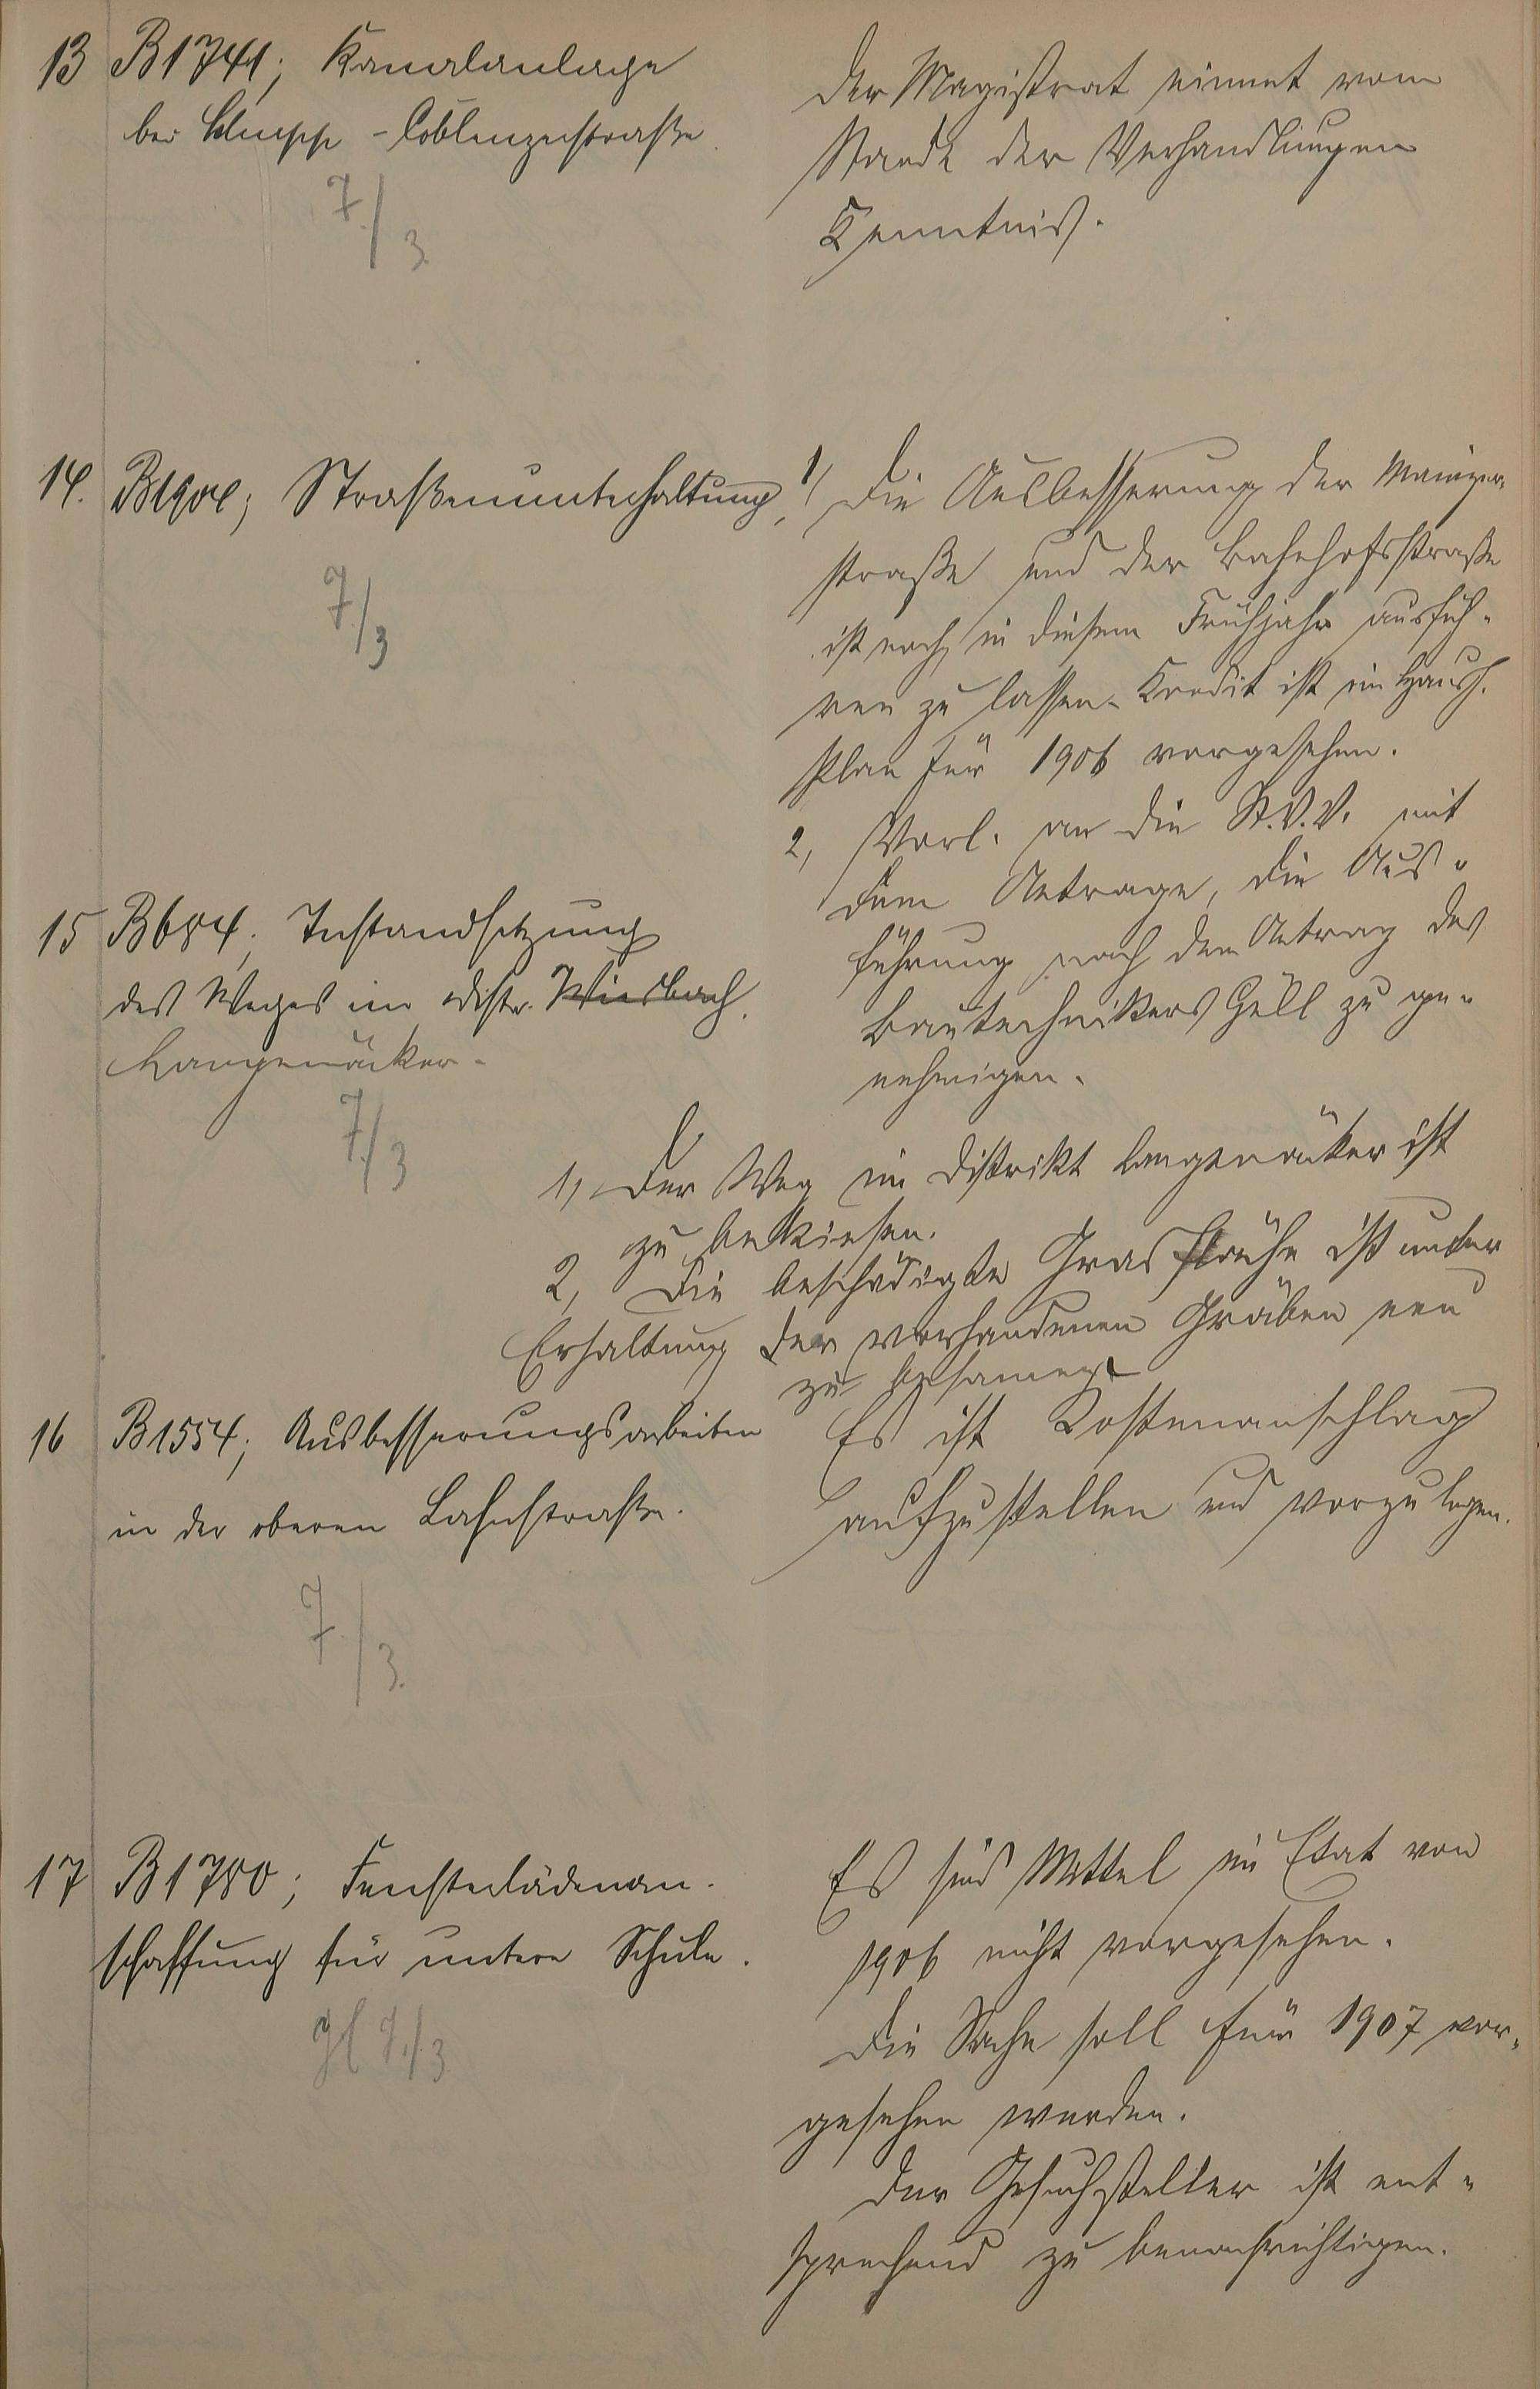 13 B1741; Kanalanlage
bei Clupp - Coblenzerstraße.
7./3.
Der Magistrat nimmt vom
Stande der Verhandlungen
Kenntnis.
14. B1904; Straßenunterhaltung,
7./3
1/ Die Ausbesserung der Mainzer-
straße und der Bahnhofsstraße
ist noch in diesem Frühjahr ausfüh-
ren zu lassen. Kredit ist im Haush.
plan für 1906 vorgesehen.
2, Vorl. an die St.V.V. mit
dem Antrage, die Aus-
führung nach dem Antrag des
Bautechnikers Gëll zu ge-
nehmigen.
15 B684; Instandsetzung
des Weges im Distr. Wiesbach.
Langenäcker.
7./3
1, Der Weg im Distrikt Langenäcker ist
zu bekiesen.
2, Die beschädigte Grasfläche ist unter
Erhaltung der vorhandenen Gräben neu
zu besamen
16 B1554; Ausbesserungsarbeiten
in der oberen Lahnstraße.
7./3.
Es ist Kostenanschlag
aufzustellen und vorzulegen.
17 B1780; Fensterlädenan-
schaffung für untere Schule.
7./3
Es sind Mittel im Etat von
1906 nicht vorgesehen.
Die Sache soll für 1907 vor-
gesehen werden.
Der Gesuchsteller ist ent-
sprechend zu benachrichtigen.